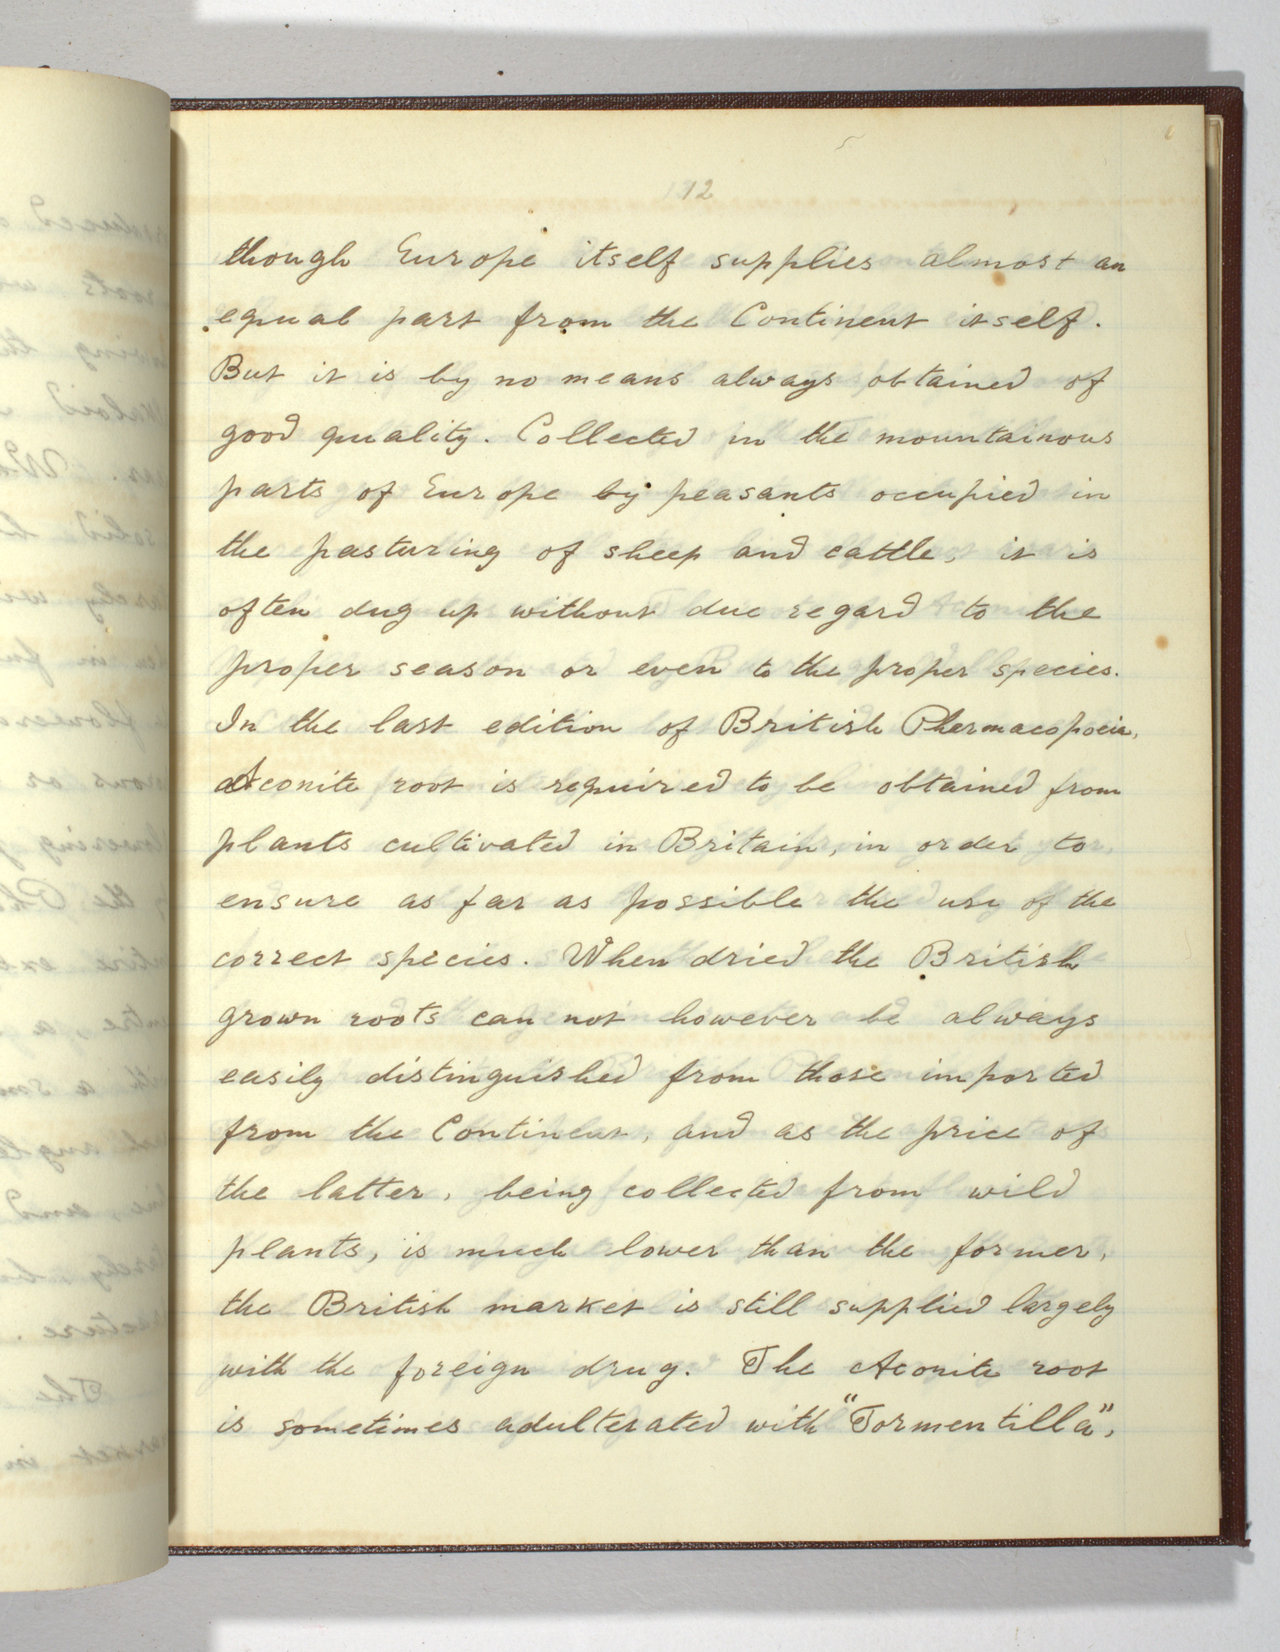 12
though Europe itself supplies almost an
equal part from the Continent itself.
But it is by no means always obtained of
good quality. Collected in the mountainous
parts of Europe by peasants occupied in
the pasturing of sheep and cattle, it is
often dug up without due regard to the
proper season or even to the proper species.
In the last edition of British Phermacopoeia,
Aconite root is required to be obtained from
plants cultivated in Britain, in order to
ensure as far as possible the use of the
correct species. When dried the British
grown roots can not however be always
easily distinguished from those imported
from the Continent, and as the price of
the latter, being collected from wild
plants, is much lower than the former,
the British market is still supplied largely
with the foreign drug. The Aconite root
is sometimes adulterated with "Tormentilla",